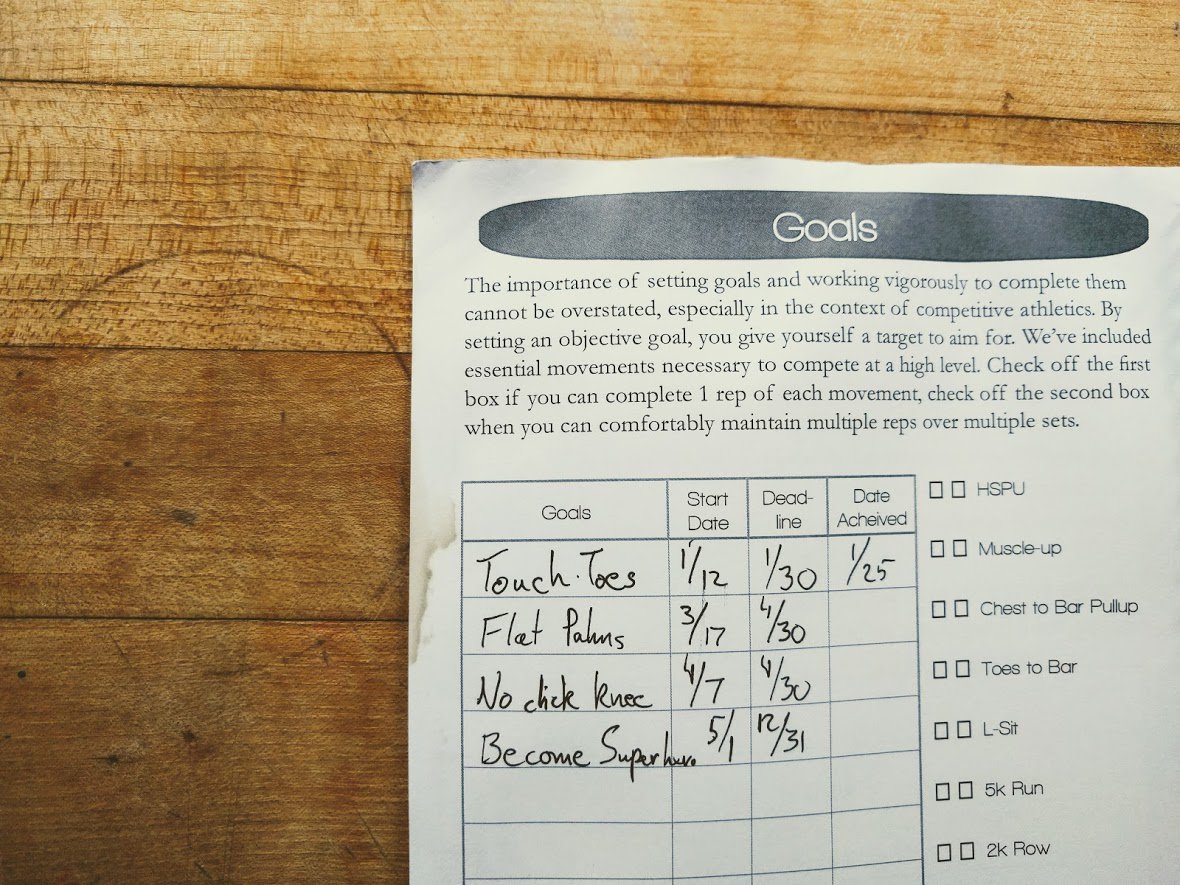 Goals
The importance of setting goals and working vigorously to complete them
cannot be overstated, especially in the context of competitive athletics. By
setting an objective goal, you give yourself a target to aim for. We've included
essential movements necessary to compete at a high level. Check off the first
box if you can complete 1 rep of each movement, check off the second box
when you can comfortably maintain multiple reps over multiple sets.
Goals Start Date Dead-line Date Acheived
Touch Toes 1/12 1/30 1/25
Flat Palms 3/17 4/30
No click knee 4/7 4/30
Become Superhero 5/1 12/31
HSPU
Muscle-up
Chest to Bar Pullup
Toes to Bar
L-Sit
5k Run
2k Row